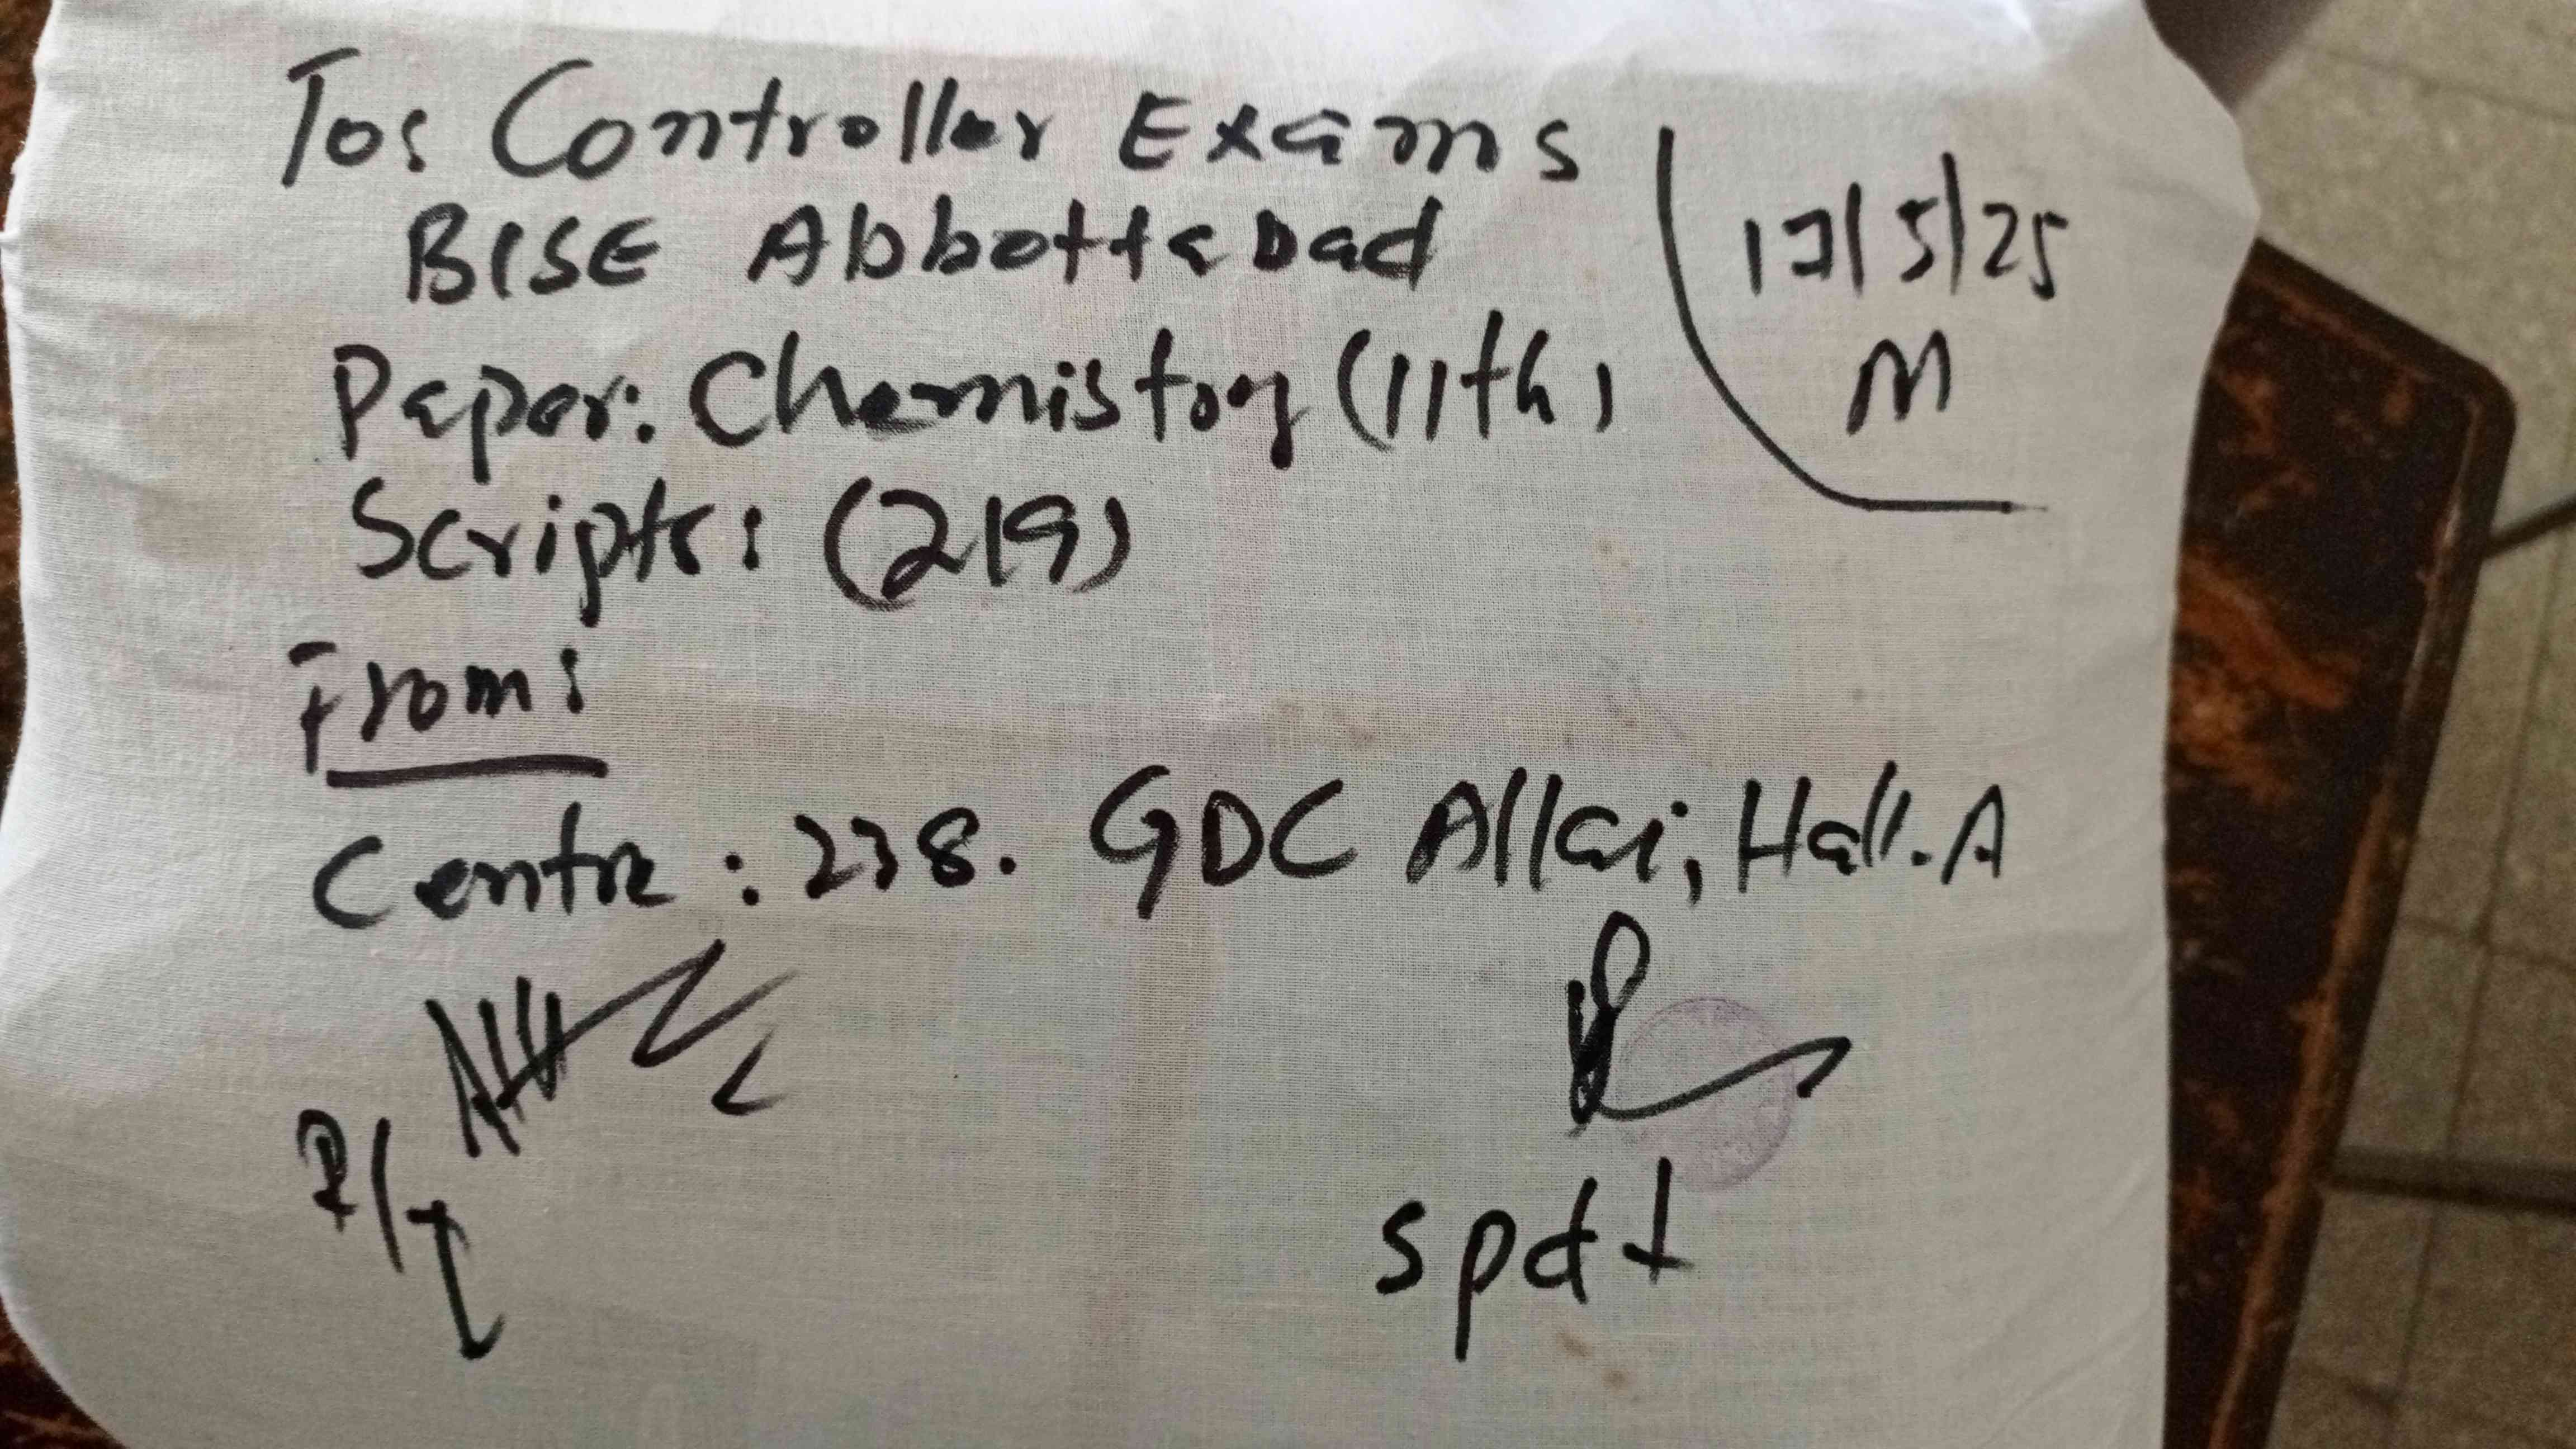 To: Controller Exams
BISE Abbottabad
Paper: Chemistry (11th)
Scripts: (219)
M
From:
Centre: 238. GDC Allai, Hall. A
spdt